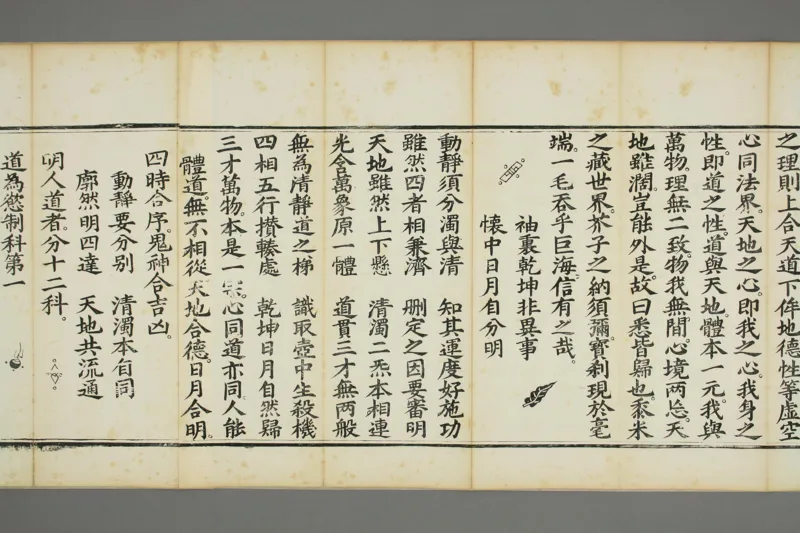 之理則上合天道下侔地德性等虛空
心同法界。天地之心。即我之心。我身之
性。即道之性。道與天地。體本一元。我與
萬物。理無二致。物我無間。心境兩忘。天
地雖濶。豈能外是。故曰悉皆歸也。黍米
之藏世界。芥子之納須彌。寶刹現於毫
端。一毛吞乎巨海。信有之哉。
袖裏乾坤非異事
懷中日月自分明
動靜須分濁與清　知其運度好施功
雖然四者相兼濟　刪定之因要審明
天地雖然上下懸　清濁二炁本相連
光含萬象原一體　道貫三才無兩般
無為清靜道之梯　識取壺中生殺機
四相五行攅輳處　乾坤日月自然歸
三才萬物。本是一。心同道亦同。人能
體道。無不相從。天地合德。日月合明。
四時合序。鬼神合吉凶。
動靜要分別　清濁本自同
廓然明四達　天地共流通
明人道者。分十二科。
道為慾制科第一